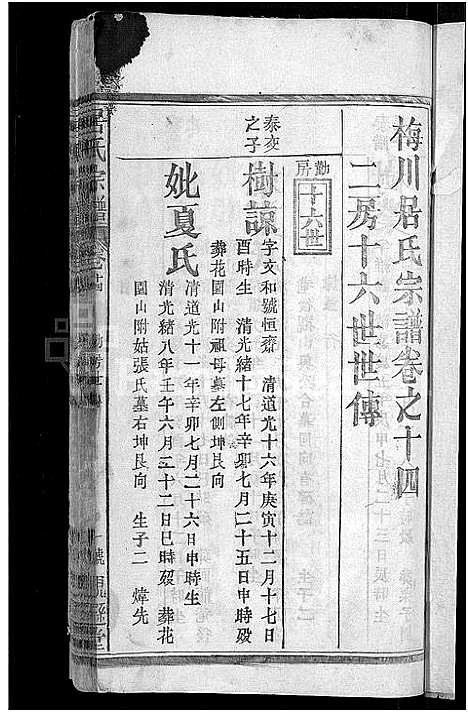 梅川居氏宗譜卷之十四
二房十六世世傳
勤房
十六世
泰交之子
樹諒
字文和號恒齋 清道光十六年庚寅十二月十七日
酉時生 清光緒十七年辛卯七月二十五日申時歿
葬花園山附祖母墓左側坤艮向
妣夏氏
清道光十一年辛卯七月二十六日申時生
清光緒八年壬午六月二十二日巳時歿 葬花
園山附姑張氏墓右坤艮向 生子二 煒先
居氏宗譜